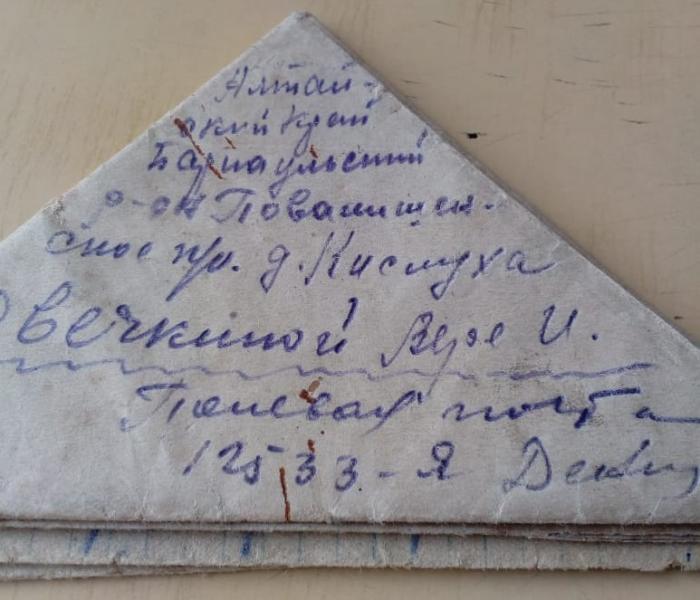 Алтай-
ский край
Барнаульский
р-он Повалишен-
ское п/о. д. Кислуха
Овечкиной Вере И.
Полевая почта
12533-Я